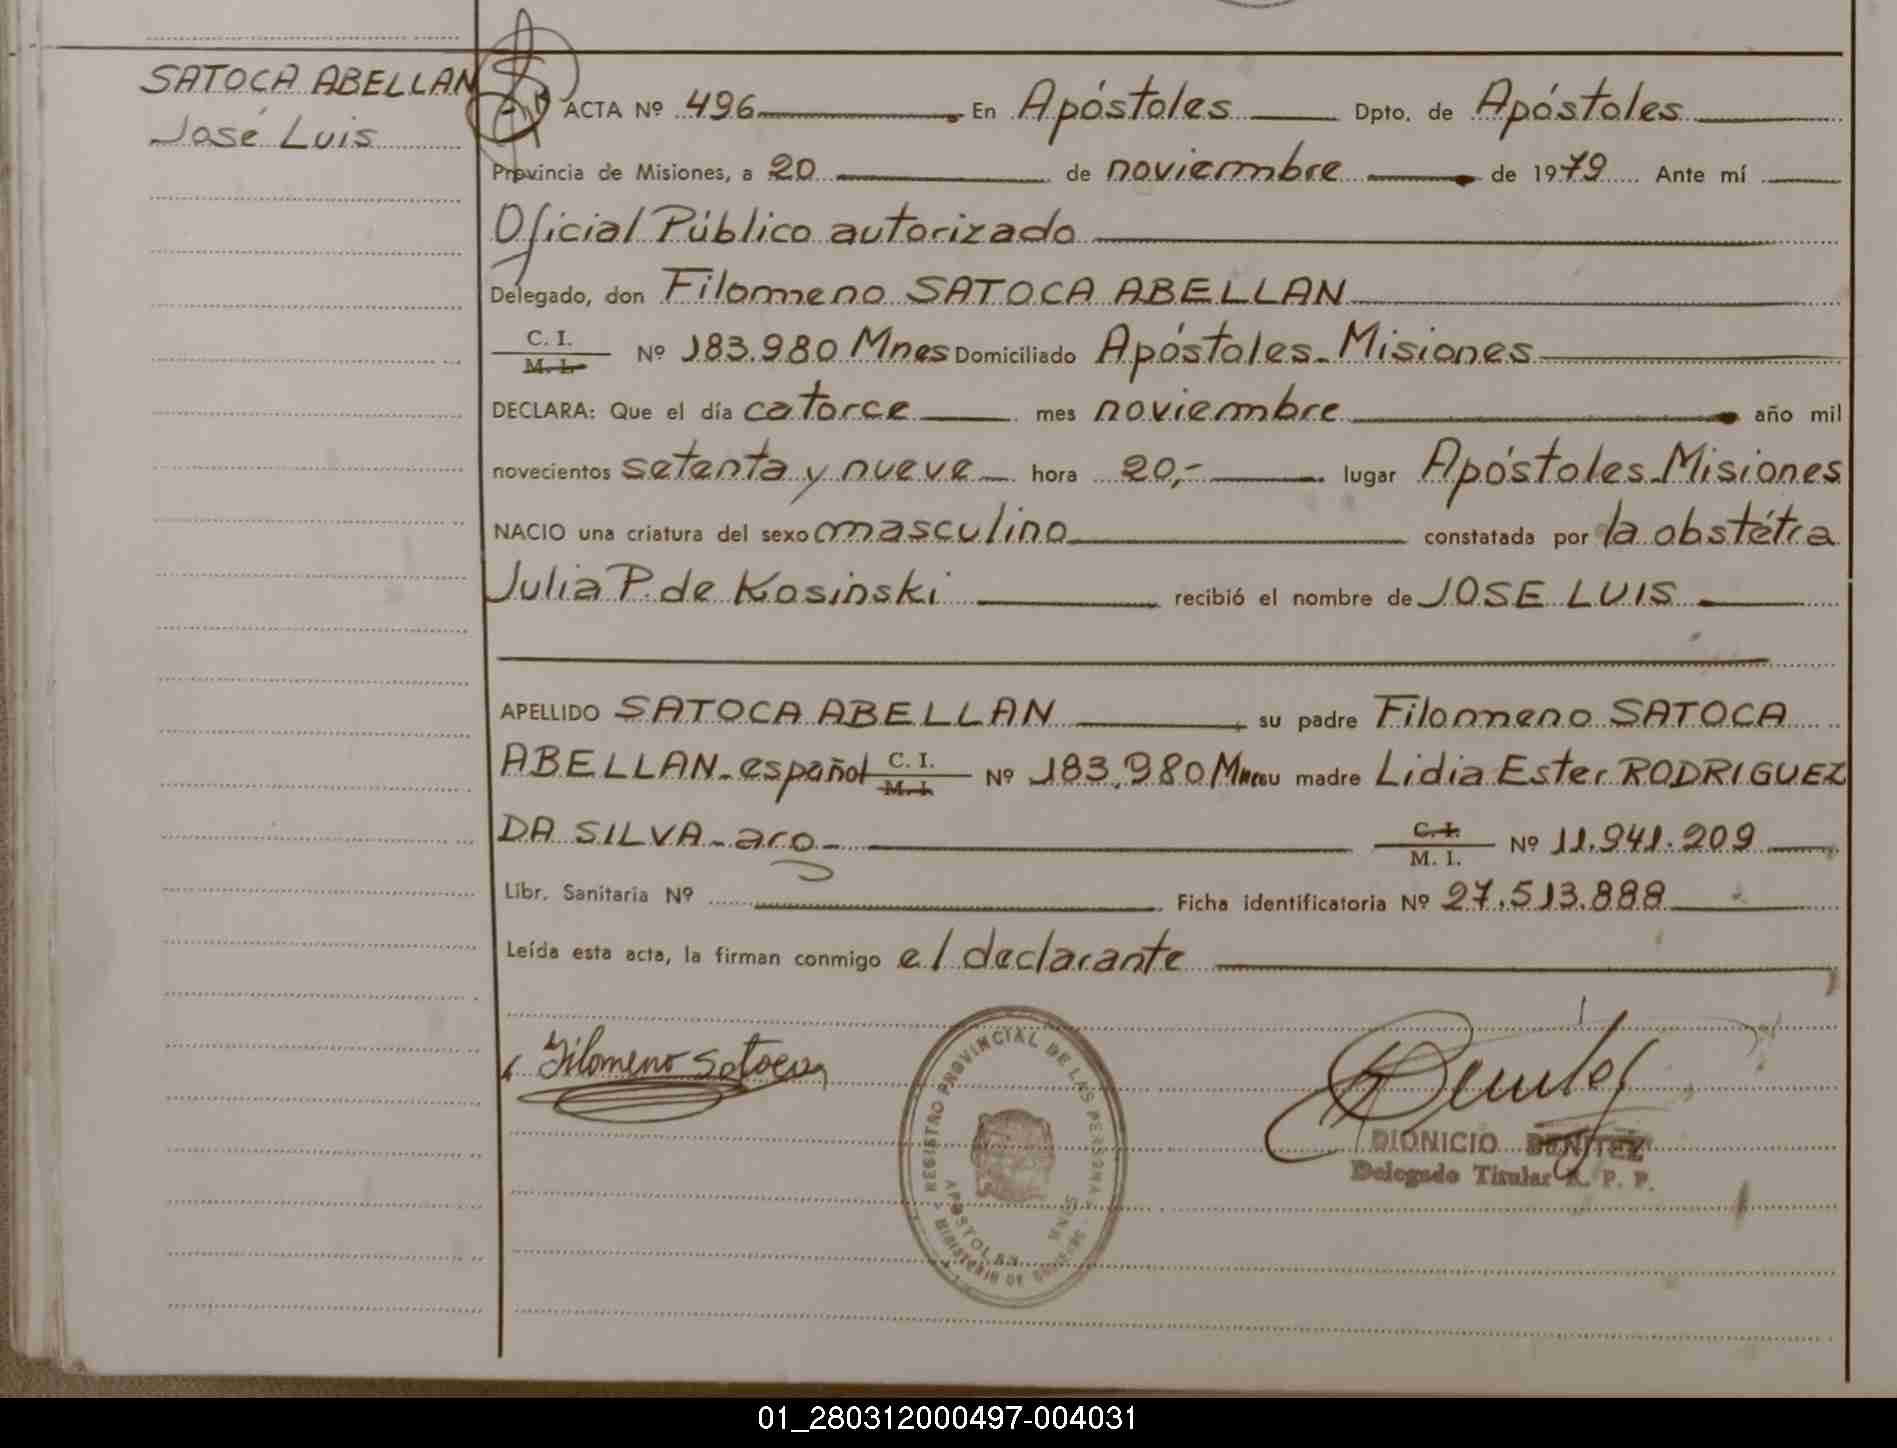 SATOCA ABELLAN
José Luis
ACTA Nº 496 En Apóstoles Dpto. de Apóstoles
Provincia de Misiones, a 20 de noviembre de 1979 Ante mí
Oficial Público autorizado
Delegado, don Filomeno SATOCA ABELLAN
C. I.
M. I. Nº 183.980 Mnes Domiciliado Apóstoles-Misiones
DECLARA: Que el día catorce mes noviembre año mil
novecientos setenta y nueve hora 20,- lugar Apóstoles-Misiones
NACIO una criatura del sexo masculino constatada por la obstétra
Julia P. de Kosinski recibió el nombre de JOSE LUIS
APELLIDO SATOCA ABELLAN su padre Filomeno SATOCA
ABELLAN-español C. I. M. I. Nº 183.980 Mnes su madre Lidia Ester RODRIGUEZ
DA SILVA-arg- C. I. M. I. Nº 11.941.209
Libr. Sanitaria Nº Ficha identificatoria Nº 27.513.888
Leída esta acta, la firman conmigo el declarante
Filomeno Satoca
REGISTRO PROVINCIAL DE LAS PERSONAS
APOSTOLES MNES
MINISTERIO DE GOBIERNO
DIONICIO BENITEZ
Delegado Titular R. P. P.
01_280312000497-004031